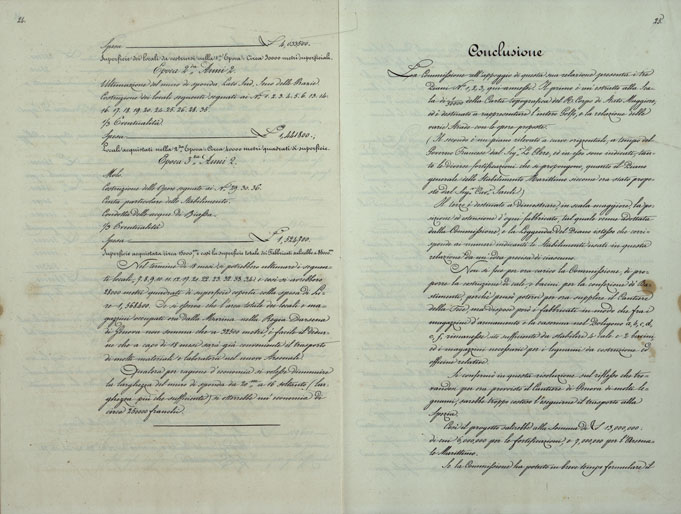 24.
Spesa £ 4,033500.
Superficie dei locali da costruirsi nella 1ª Epoca. Circa 3000 metri superficiali.
Epoca 2ª Anni 2.
Ultimazione del muro di sponda, Lato Sud, Seno delle Grazie
Costruzione dei locali seguenti segnati ai Nⁱ 1. 2. 3. 4. 5. 6. 13. 14.
16. 17. 18. 19. 20. 24. 25. 26. 28. 35.
1/3 Eventualità
Spesa £ 1,441800.
Locali acquistati nella 2ª Epoca. Circa metri quadrati di superficie.
Epoca 3ª Anni 2.
Moli.
Costruzione delle Opere segnate ai Nⁱ 29. 30. 36.
Porta particolare dello Stabilimento.
Condotta delle acque di Biassa.
1/3 Eventualità
Spesa £ 1,524700.
Superficie acquistata circa e così la superficie totale dei Fabbricati sarebbe a
Nel termine di 18 mesi si potrebbero ultimare i seguenti
locali, 7. 8. 9. 11. 12. 17. 20. 22. 23. 32. 33. 34. e così si avrebbero
2800 metri quadrati di superficie coperta colla spesa di Lire
1,568400. Se si osserva che l'area totale dei locali e magazzini
occupati ora dalla Marina nella Regia Darsena
di Genova non somma che a 32500 metri, è facile il dedurne
che a capo di 18 mesi sarà già conveniente il trasporto
di molti materiali e laboratori nel nuovo Arsenale.
Qualora per ragione d'economia si volesse diminuire
la larghezza del muro di sponda da 20.m a 16 soltanto (larghezza
più che sufficiente) si otterrebbe un'economia di
circa franchi.
25.
Conclusione
La Commissione all'appoggio di questa sua relazione presenta i tre
Piani Nⁱ 1, 2, 3, qui annessi. Il primo è un estratto alla scala
di della Carta topografica del R. Corpo di Stato Maggiore,
ed è destinato a rappresentare l'intero Golfo, e la relazione delle
varie Strade con le opere proposte.
Il secondo è un piano rilevato a curve orizzontali, a tempo del
Governo Francese dal Sig. Le Clerc, ed in esso sono indicate, tanto
le diverse fortificazioni che si propongono, quanto il Piano
generale dello Stabilimento Marittimo siccome era stato proposto
dal Sig. Cav. Sauli.
Il terzo è destinato a dimostrare in scala maggiore, la posizione
ed estensione d'ogni fabbricato, tal quale venne dettata
dalla Commissione, e la Leggenda del Piano istesso che corrisponde
ai numeri indicanti lo Stabilimento darà in questa
relazione un'idea precisa di ciascuno.
Non si fece per ora carico la Commissione, di proporre
la costruzione di cale e bacini per la confezione di Bastimenti,
perchè può potersi per ora supplire il Cantiere
della Foce, ma dispose però i fabbricati in modo che fra i
magazzini d'armamento e la caserma nel Poligono a, b, c, d,
e, f, rimanesse sito sufficiente da stabilire 4 cale e 2 bacini,
ed i magazzini necessari per i legnami da costruzione ed
officine relative.
A confermarsi in questa risoluzione, sul riflesso che trovandosi
per ora provvisto il Cantiere di Genova di molto legname,
sarebbe troppo costoso l'eseguirne il trasporto alla
Spezia.
Così il progetto salirebbe alla Somma di £ 13,000,000.
di cui 6,000,000 per le fortificazioni, e 7,000,000 per l'Arsenale
Marittimo.
Se la Commissione ha potuto in breve tempo formulare il